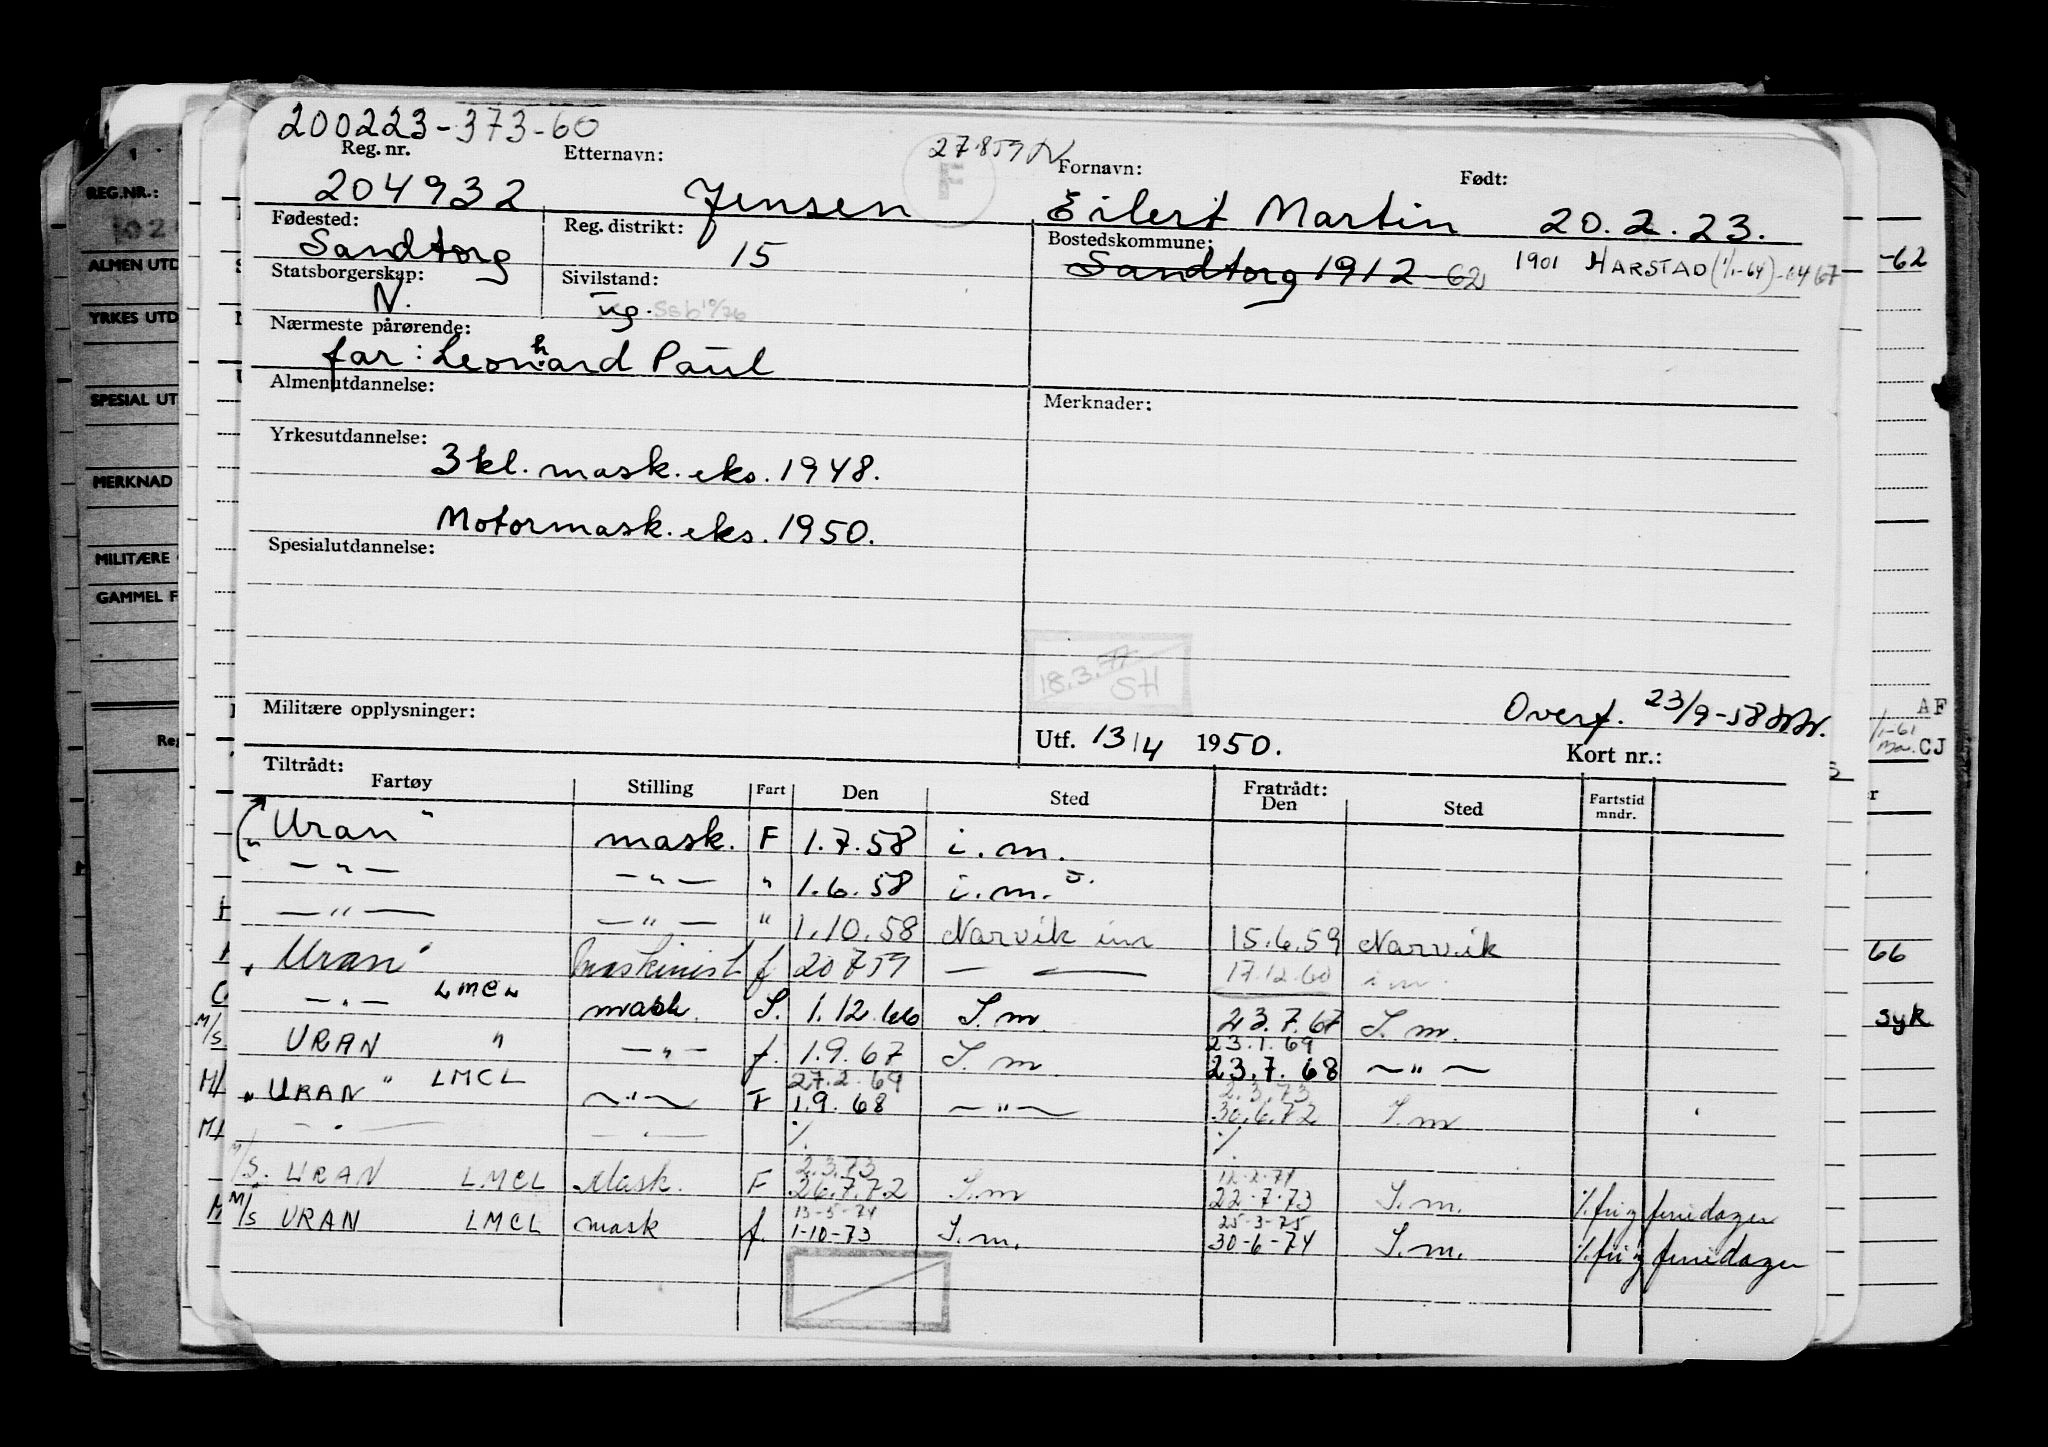 200223-373-60
Reg. nr. Etternavn: 27.8.59 N Fornavn: Født:
204932 Jensen F Eilert Martin 20.2.23.
Fødested: Reg. distrikt: Bostedskommune:
Sandtorg 15 Sandtorg 1912-62 1901 HARSTAD (1/1-64)
Statsborgerskap: Sivilstand:
N. ug.
Nærmeste pårørende:
far: Leonhard Paul
Almenutdannelse: Merknader:
Yrkesutdannelse:
3 kl. mask. eks. 1948.
Motormask. eks. 1950.
Spesialutdannelse:
18.3.77
SH
Militære opplysninger: Overf. 23/9-58
Utf. 13/4 1950. Kort nr.:
Tiltrådt: Fratrådt:
Fartøy Stilling Fart Den Sted Den Sted Fartstid mndr.
"Uran" mask. F 1.7.58 i.m.
—"— —"— " 1.6.58 i.m.
—"— —"— " 1.10.58 Narvik im 15.6.59 Narvik
"Uran" Maskinist f 20 7 59 — — 17.12.60 i m.
—"— LMCL mask. S. 1.12.66 S.m. 23.7.67 S.m.
23.1.69
M/S URAN " —"— f. 1.9.67 S.m. 23.7.68 —"—
27.2.69 2.3.73
M/ "URAN" LMCL —"— F 1.9.68 —"— 30.6.72 S.m
M/ —"— —"— %. %.
2.3.73 12-2-74
M/S. URAN LMCL Mask. F 26.7.72 S.m 22-7-73 S.m. %.fri g feriedager
13-5-74 25-3-75
M/S URAN LMCL mask f. 1-10-73 S.m. 30-6-74 S.m. %.fri g feriedager
REG.NR.:
ALMEN UTD
YRKES UTD
SPESIAL UT
MERKNAD
MILITÆRE
GAMMEL F
Reg
-62
AF
CJ
66
syk